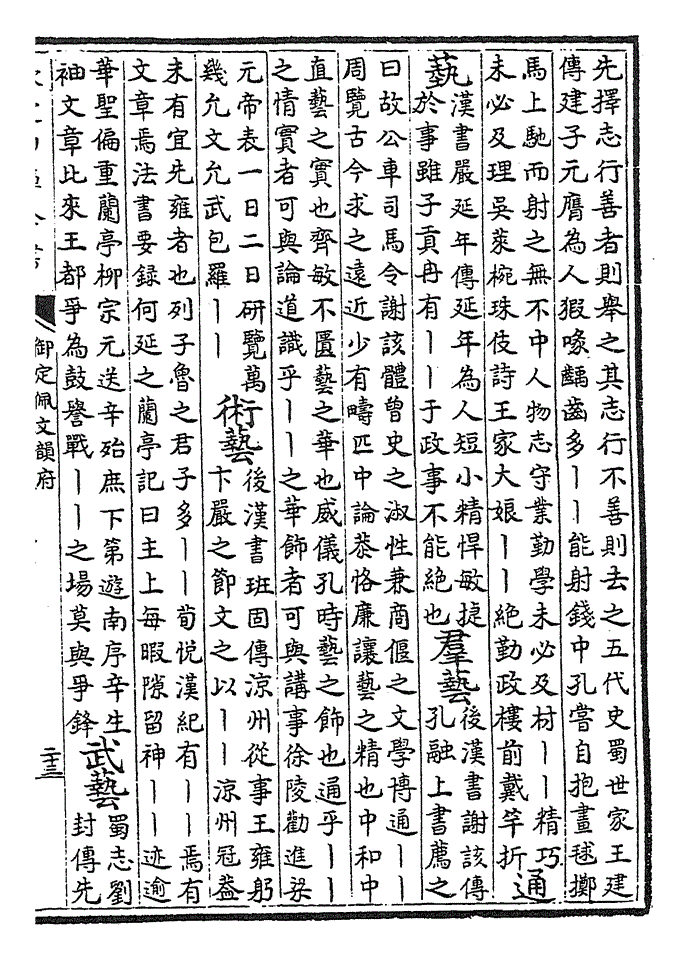 先擇志行善者則舉之其志行不善則去之五代史蜀世家王建
傳建子元膺為人猳喙齲齒多丨丨能射錢中孔嘗自抱畫毬擲
馬上馳而射之無不中人物志守業勤學未必及材丨丨精巧
未必及理吳萊椀珠伎詩王家大娘丨丨絶勤政樓前戴竿折
通
藝
漢書嚴延年傳延年為人短小精悍敏捷
於事雖子貢冉有丨丨于政事不能絶也
羣藝
後漢書謝該傳
孔融上書薦之
曰故公車司馬令謝該體曾史之淑性兼商偃之文學博通丨丨
周覽古今求之遠近少有疇匹中論恭恪廉讓藝之精也中和中
直藝之實也齊敏不匱藝之華也威儀孔時藝之飾也通乎丨丨
之情實者可與論道識乎丨丨之華飾者可與講事徐陵勸進梁
元帝表一日二日研覽萬
幾允文允武包羅丨丨
術藝
後漢書班固傳涼州從事王雍躬
卞嚴之節文之以丨丨涼州冠蓋
未有宜先雍者也列子魯之君子多丨丨荀悅漢紀有丨丨焉有
文章焉法書要録何延之蘭亭記曰主上每暇隙留神丨丨迹逾
華聖偏重蘭亭柳宗元送辛殆庶下第遊南序辛生
袖文章比來王都爭為鼓譽戰丨丨之場莫與爭鋒
武藝
蜀志劉
封傳先
御定佩文韻府
二十三